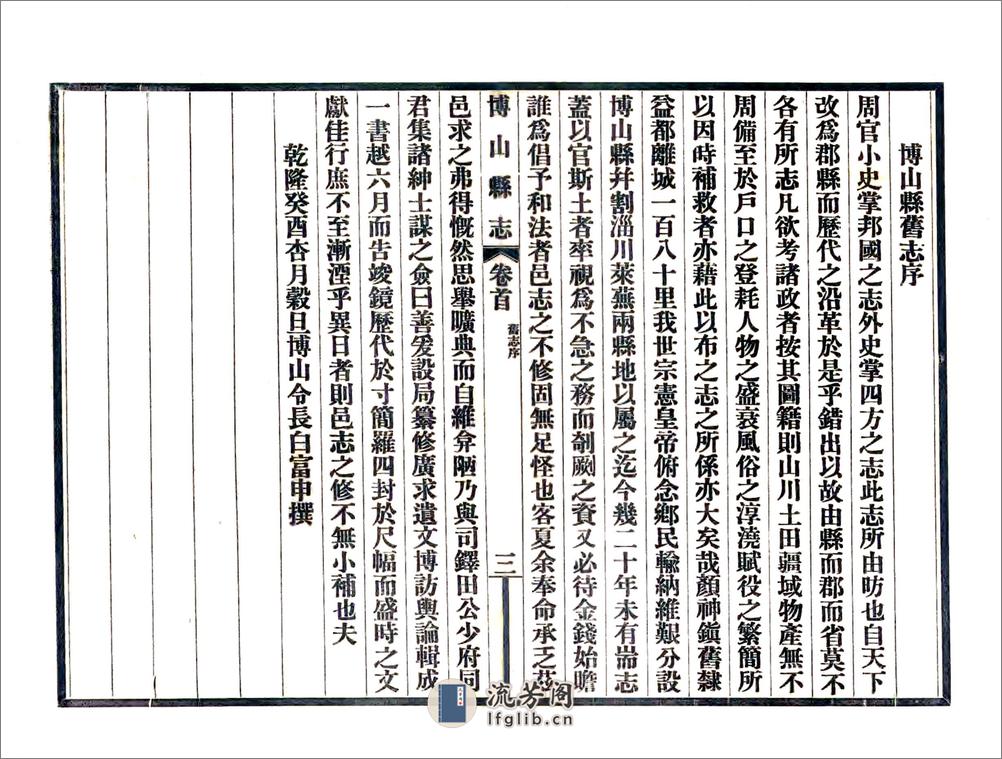 博山縣舊志序
周官小史掌邦國之志外史掌四方之志此志所由昉也自天下
改爲郡縣而歷代之沿革於是乎錯出以故由縣而郡而省莫不
各有所志凡欲考諸政者按其圖籍則山川土田疆域物產無不
周備至於戶口之登耗人物之盛衰風俗之淳澆賦役之繁簡所
以因時補救者亦藉此以布之志之所係亦大矣哉顏神鎭舊隸
益都離城一百八十里我世宗憲皇帝俯念鄉民輸納維艱分設
博山縣幷割淄川萊蕪兩縣地以屬之迄今幾二十年未有耑志
蓋以官斯土者率視爲不急之務而剞劂之資又必待金錢始噡
誰爲倡予和法者邑志之不修固無足怪也客夏余奉命承乏茲
博山縣志
卷首
舊志序
三
邑求之弗得慨然思舉曠典而自維弇陋乃與司鐸田公少府同
君集諸紳士謀之僉曰善爰設局纂修廣求遺文博訪輿論輯成
一書越六月而告竣鏡歷代於寸簡羅四封於尺幅而盛時之文
獻佳行庶不至漸湮乎異日者則邑志之修不無小補也夫
乾隆癸酉杏月穀旦博山令長白富申撰
流芳閣
lfglib.cn